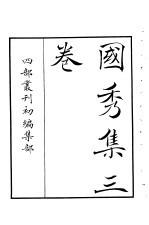 國秀集三
卷
四部叢刊初編集部